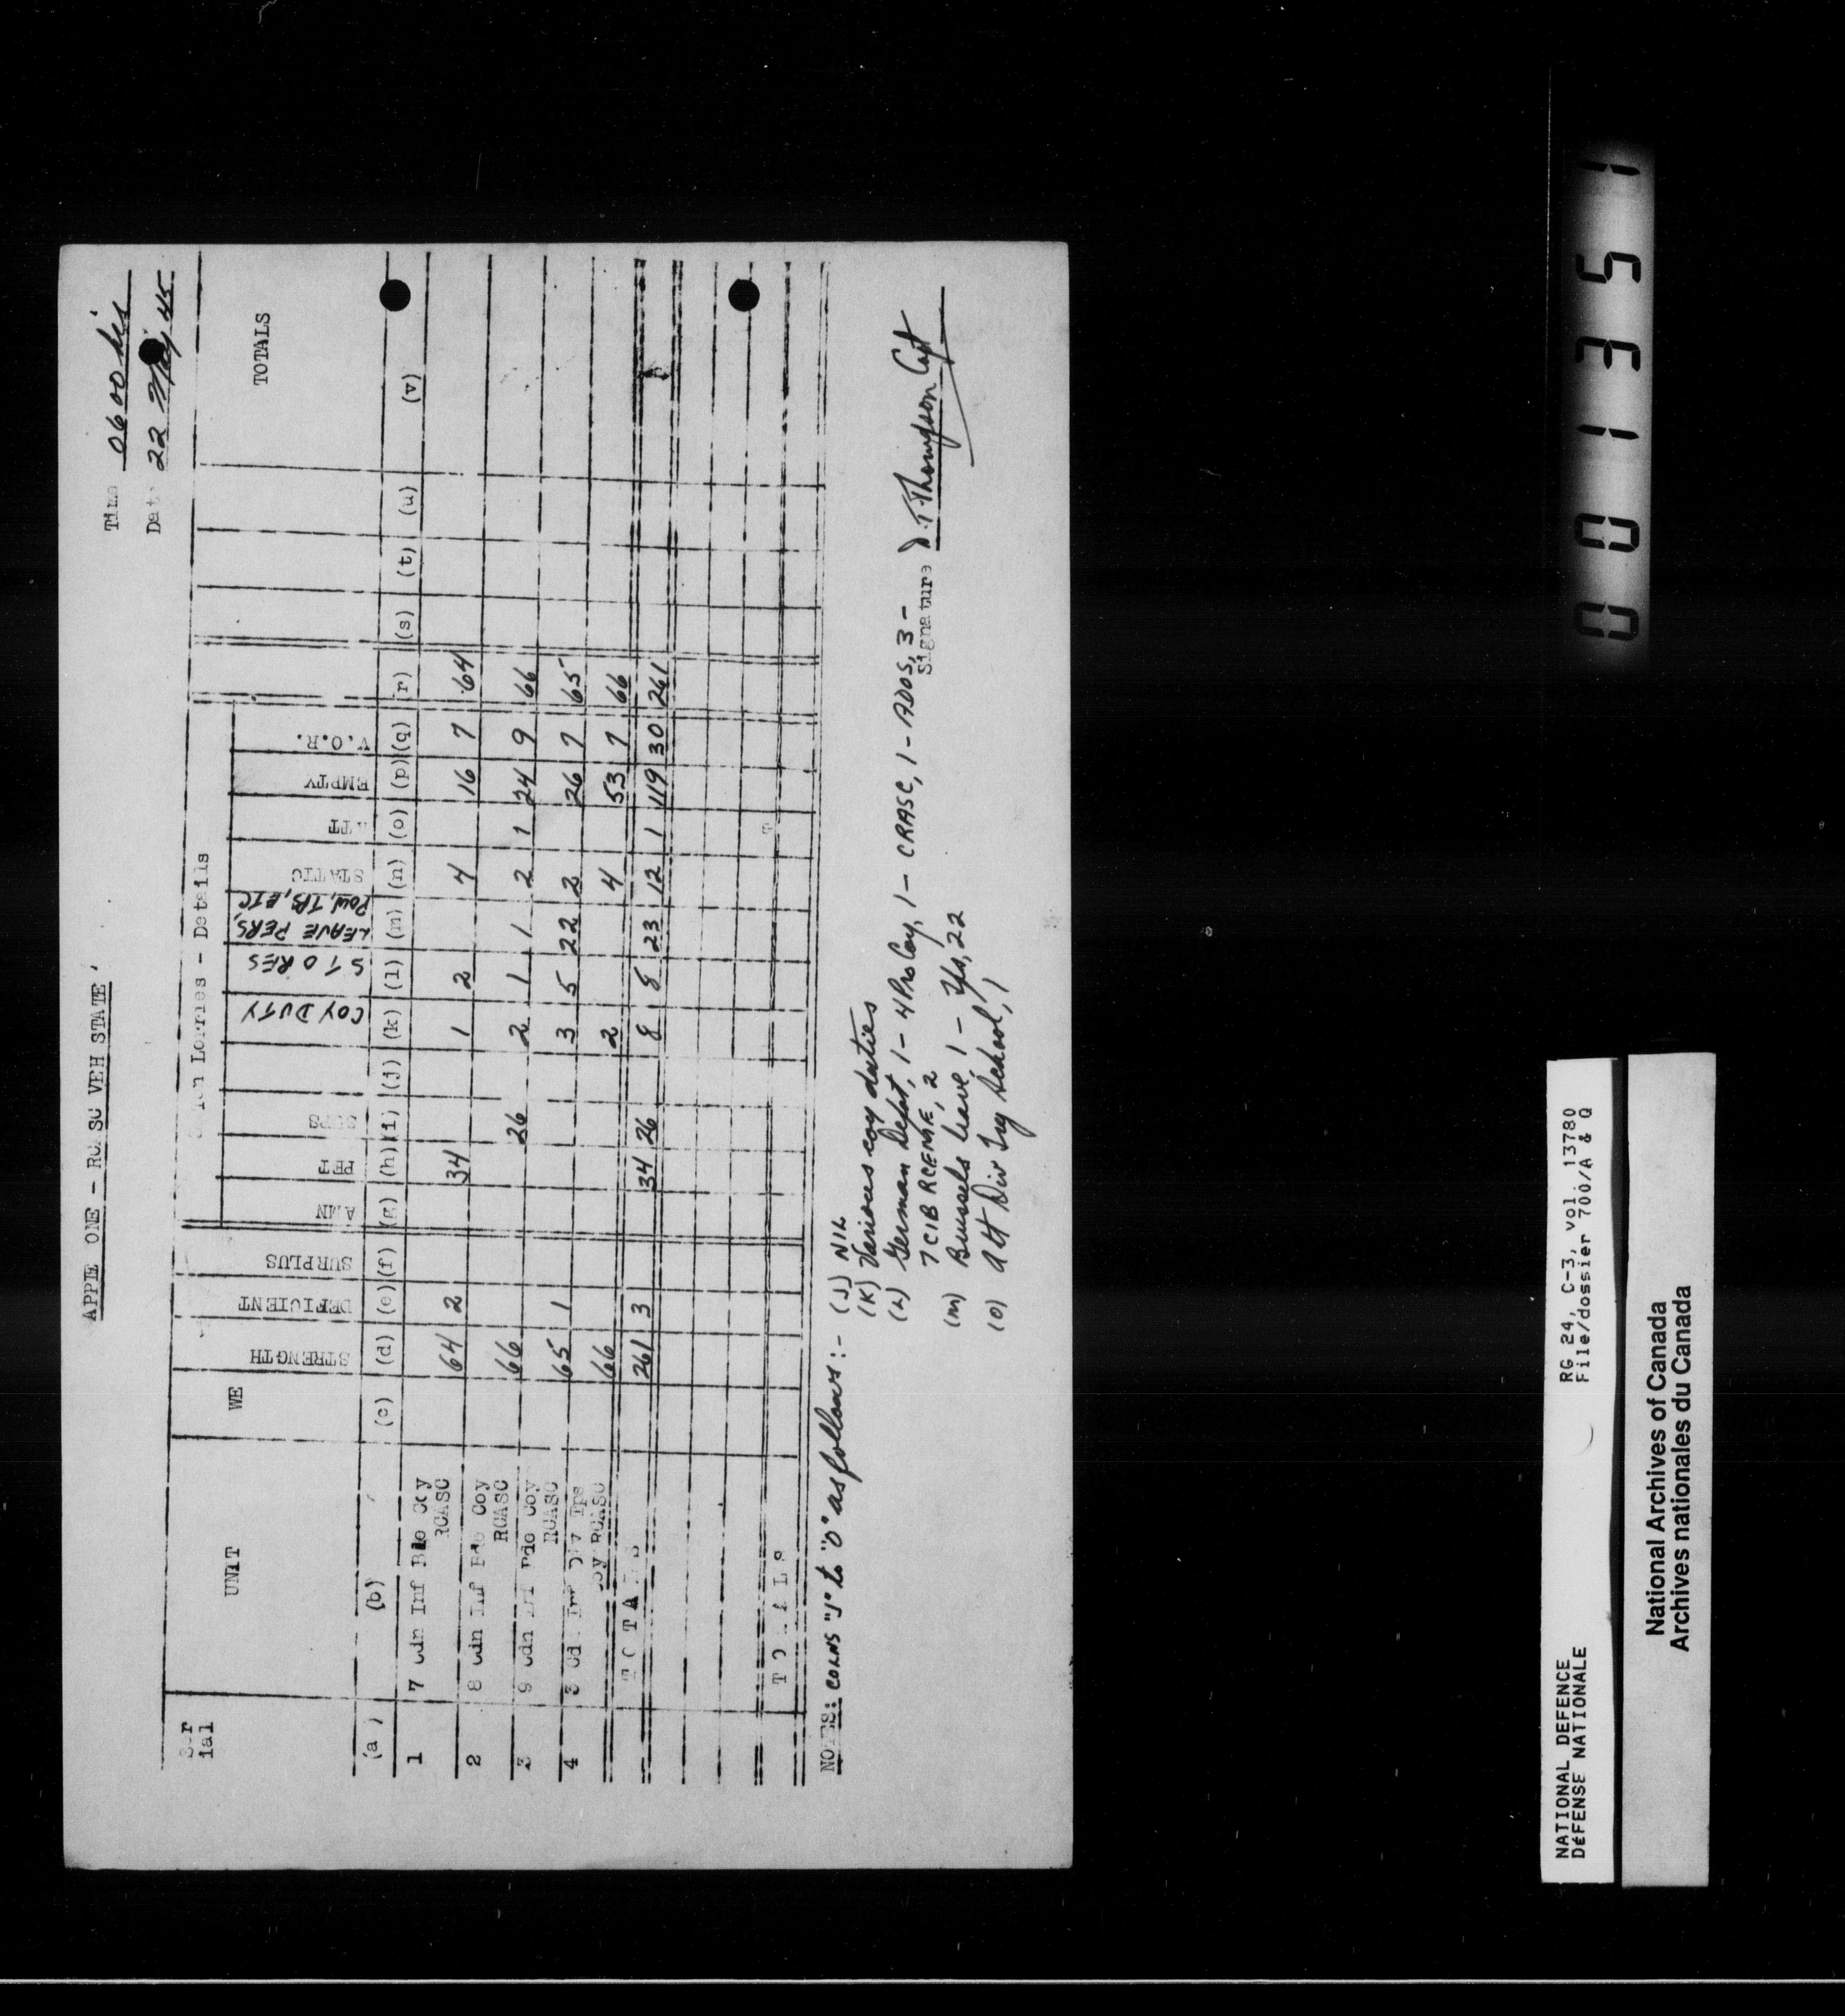 APPLE ONE - RCASC VEH STATE
Time 0600 hrs
Date 22 May 45
Ser
ial
UNIT
WE
STRENGTH
DEFICIENT
SURPLUS
Lorries - Details
AMN
PET
SUPS
COY DUTY
STORES
LEAVE PERS,
POW, IB, ETC
STATIC
ATT
EMPTY
V.O.R.
TOTALS
(a) (b) (c) (d) (e) (f) (g) (h) (i) (j) (k) (l) (m) (n) (o) (p) (q) (r) (s) (t) (u) (v)
1 7 Cdn Inf Bde Coy RCASC 64 2 34 1 2 4 16 7 64
2 8 Cdn Inf Bde Coy RCASC 66 26 2 1 1 2 1 24 9 66
3 9 Cdn Inf Bde Coy RCASC 65 1 3 5 22 2 26 7 65
4 3 Cdn Inf Div Tps Coy RCASC 66 2 4 53 7 66
TOTALS 261 3 34 26 8 8 23 12 1 119 30 261
TOTALS
NOTES: COLNS "J" to "O" as follows:-
(J) NIL
(K) Various coy duties
(L) German Depot, 1 - 4 Pro Coy, 1 - CRASC, 1 - ADOS, 3 -
7 CIB RCEME, 2
(M) Brussels leave, 1 - 22
(O) att Div Trg School, 1
Signature Thompson Capt
001351
NATIONAL DEFENCE RG 24, C-3, vol. 13780
DéFENSE NATIONALE File/dossier 700/A & Q
National Archives of Canada
Archives nationales du Canada